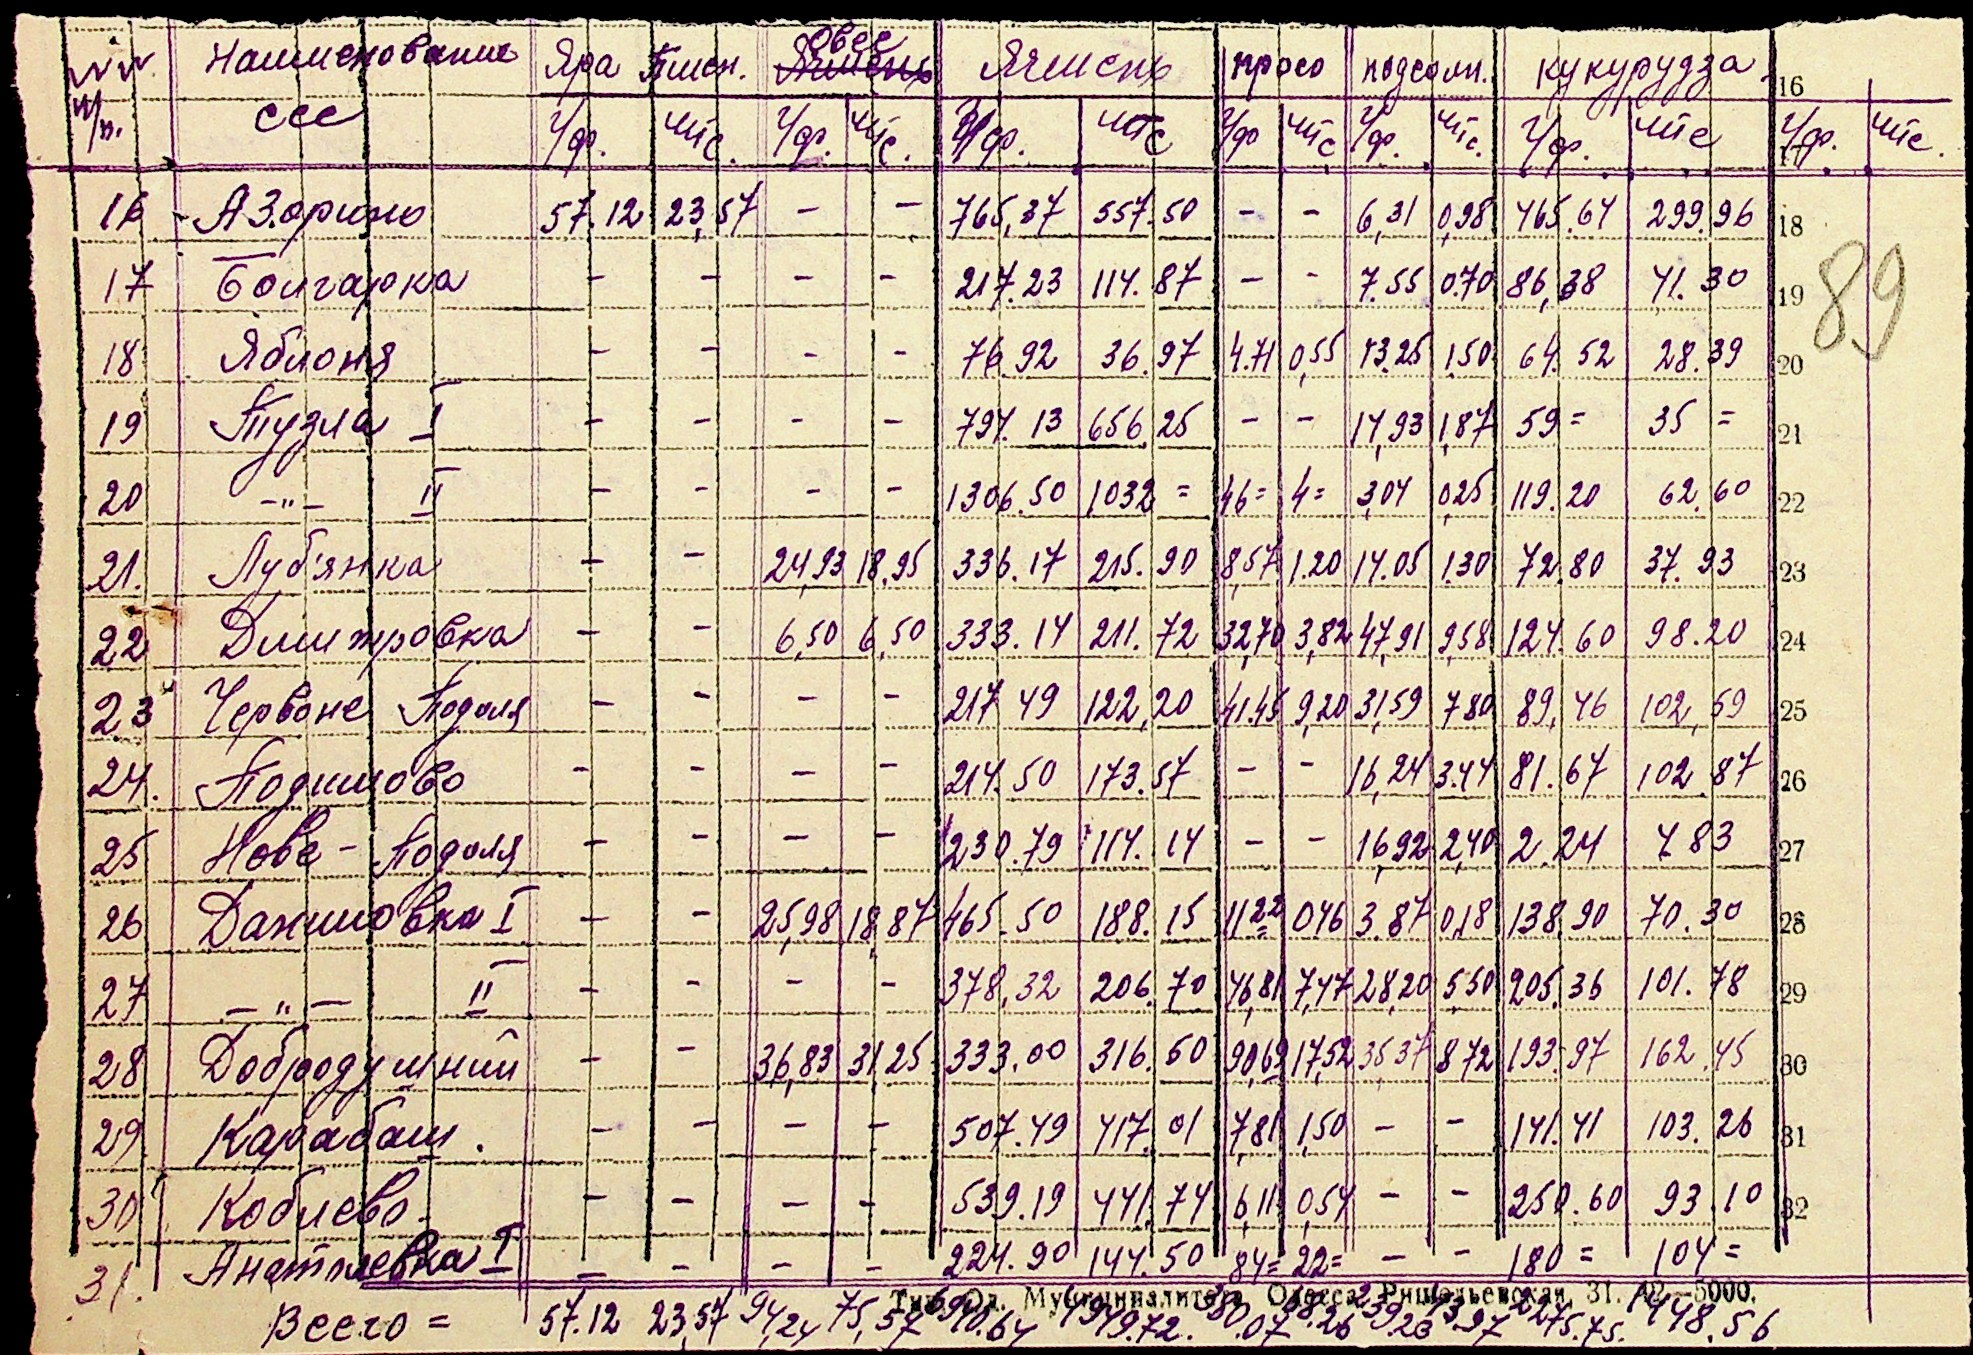 №№ п/п. Наименование ссс Яра Пшен. Овес Ячмень просо подсолн. кукурудза 16
Ур. шт. Ур. шт. Ур. шт. Ур. шт. Ур. шт. Ур. шт. Ур. шт. 17
16 Азарино 57.12 23,57 – – 765,37 557.50 – – 6,31 0,98 465.64 299.96 18
17 Болгарка – – – – 217.23 114.87 – – 7.55 0.70 86,38 41.30 19
18 Яблоня – – – – 76.92 36.97 4.71 0,55 13.25 1,50 64.52 28.39 20
19 Тузла I – – – – 794.13 656,25 – – 14,93 1,87 59= 35= 21
20 –"– II – – – – 1306.50 1032= 46= 4= 3,04 0,25 119.20 62.60 22
21. Луб'янка – – 24,93 18,95 336.17 215.90 8,57 1.20 14.05 1.30 72.80 37.93 23
22 Дмитровка – – 6,50 6,50 333.14 211.72 32,70 3,82 47,91 9,58 124.60 98.20 24
23 Червоне Подоля – – – – 217 49 122,20 41.45 9,20 31,59 7,80 89,46 102,59 25
24. Подимово – – – – 214.50 173.57 – – 16,24 3.44 81.67 102.87 26
25 Нове-Подоля – – – – 230.79 114.14 – – 16,92 2,40 2.24 4.83 27
26 Даниловка I – – 25,98 18,87 465.50 188.15 11 22 0,46 3.87 0,18 138.90 70.30 28
27 –"– II – – – – 378,32 206.70 46,81 7,47 28,20 5,50 205.36 101.78 29
28 Добродушний – – 36,83 31,25 333.00 316.50 90,69 17,52 35,37 8,72 193.97 162.45 30
29 Карабаш. – – – – 507.49 417.01 7,81 1,50 – – 141.41 103.26 31
30 Коблево – – – – 539.19 441.74 6,11 0,54 – – 250.60 93.10 32
31. Анатолевка I – – – – 224.90 144.50 84= 22= – – 180= 104=
Тип. Од. Муниципалитета, Одесса, Ришельевская, 31. А2—5000.
Всего = 57.12 23,57 94,24 75,57 6940.64 4949.72. 380.07 68.26 239.23 43.97 2275.75. 1448.56
89